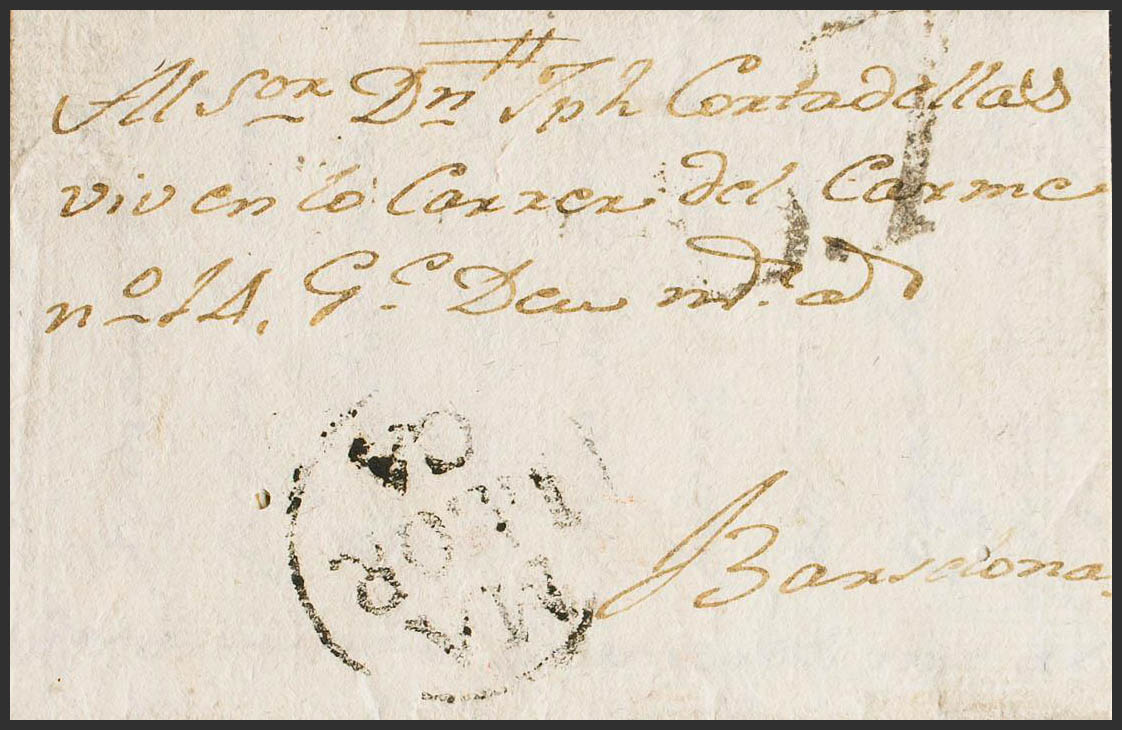 Al Sor Dn Jph Cortadellas
viv en lo Carrer del Carme
no 14. Ge. Deu md. ad
Barselona
MA
LLOR
CA